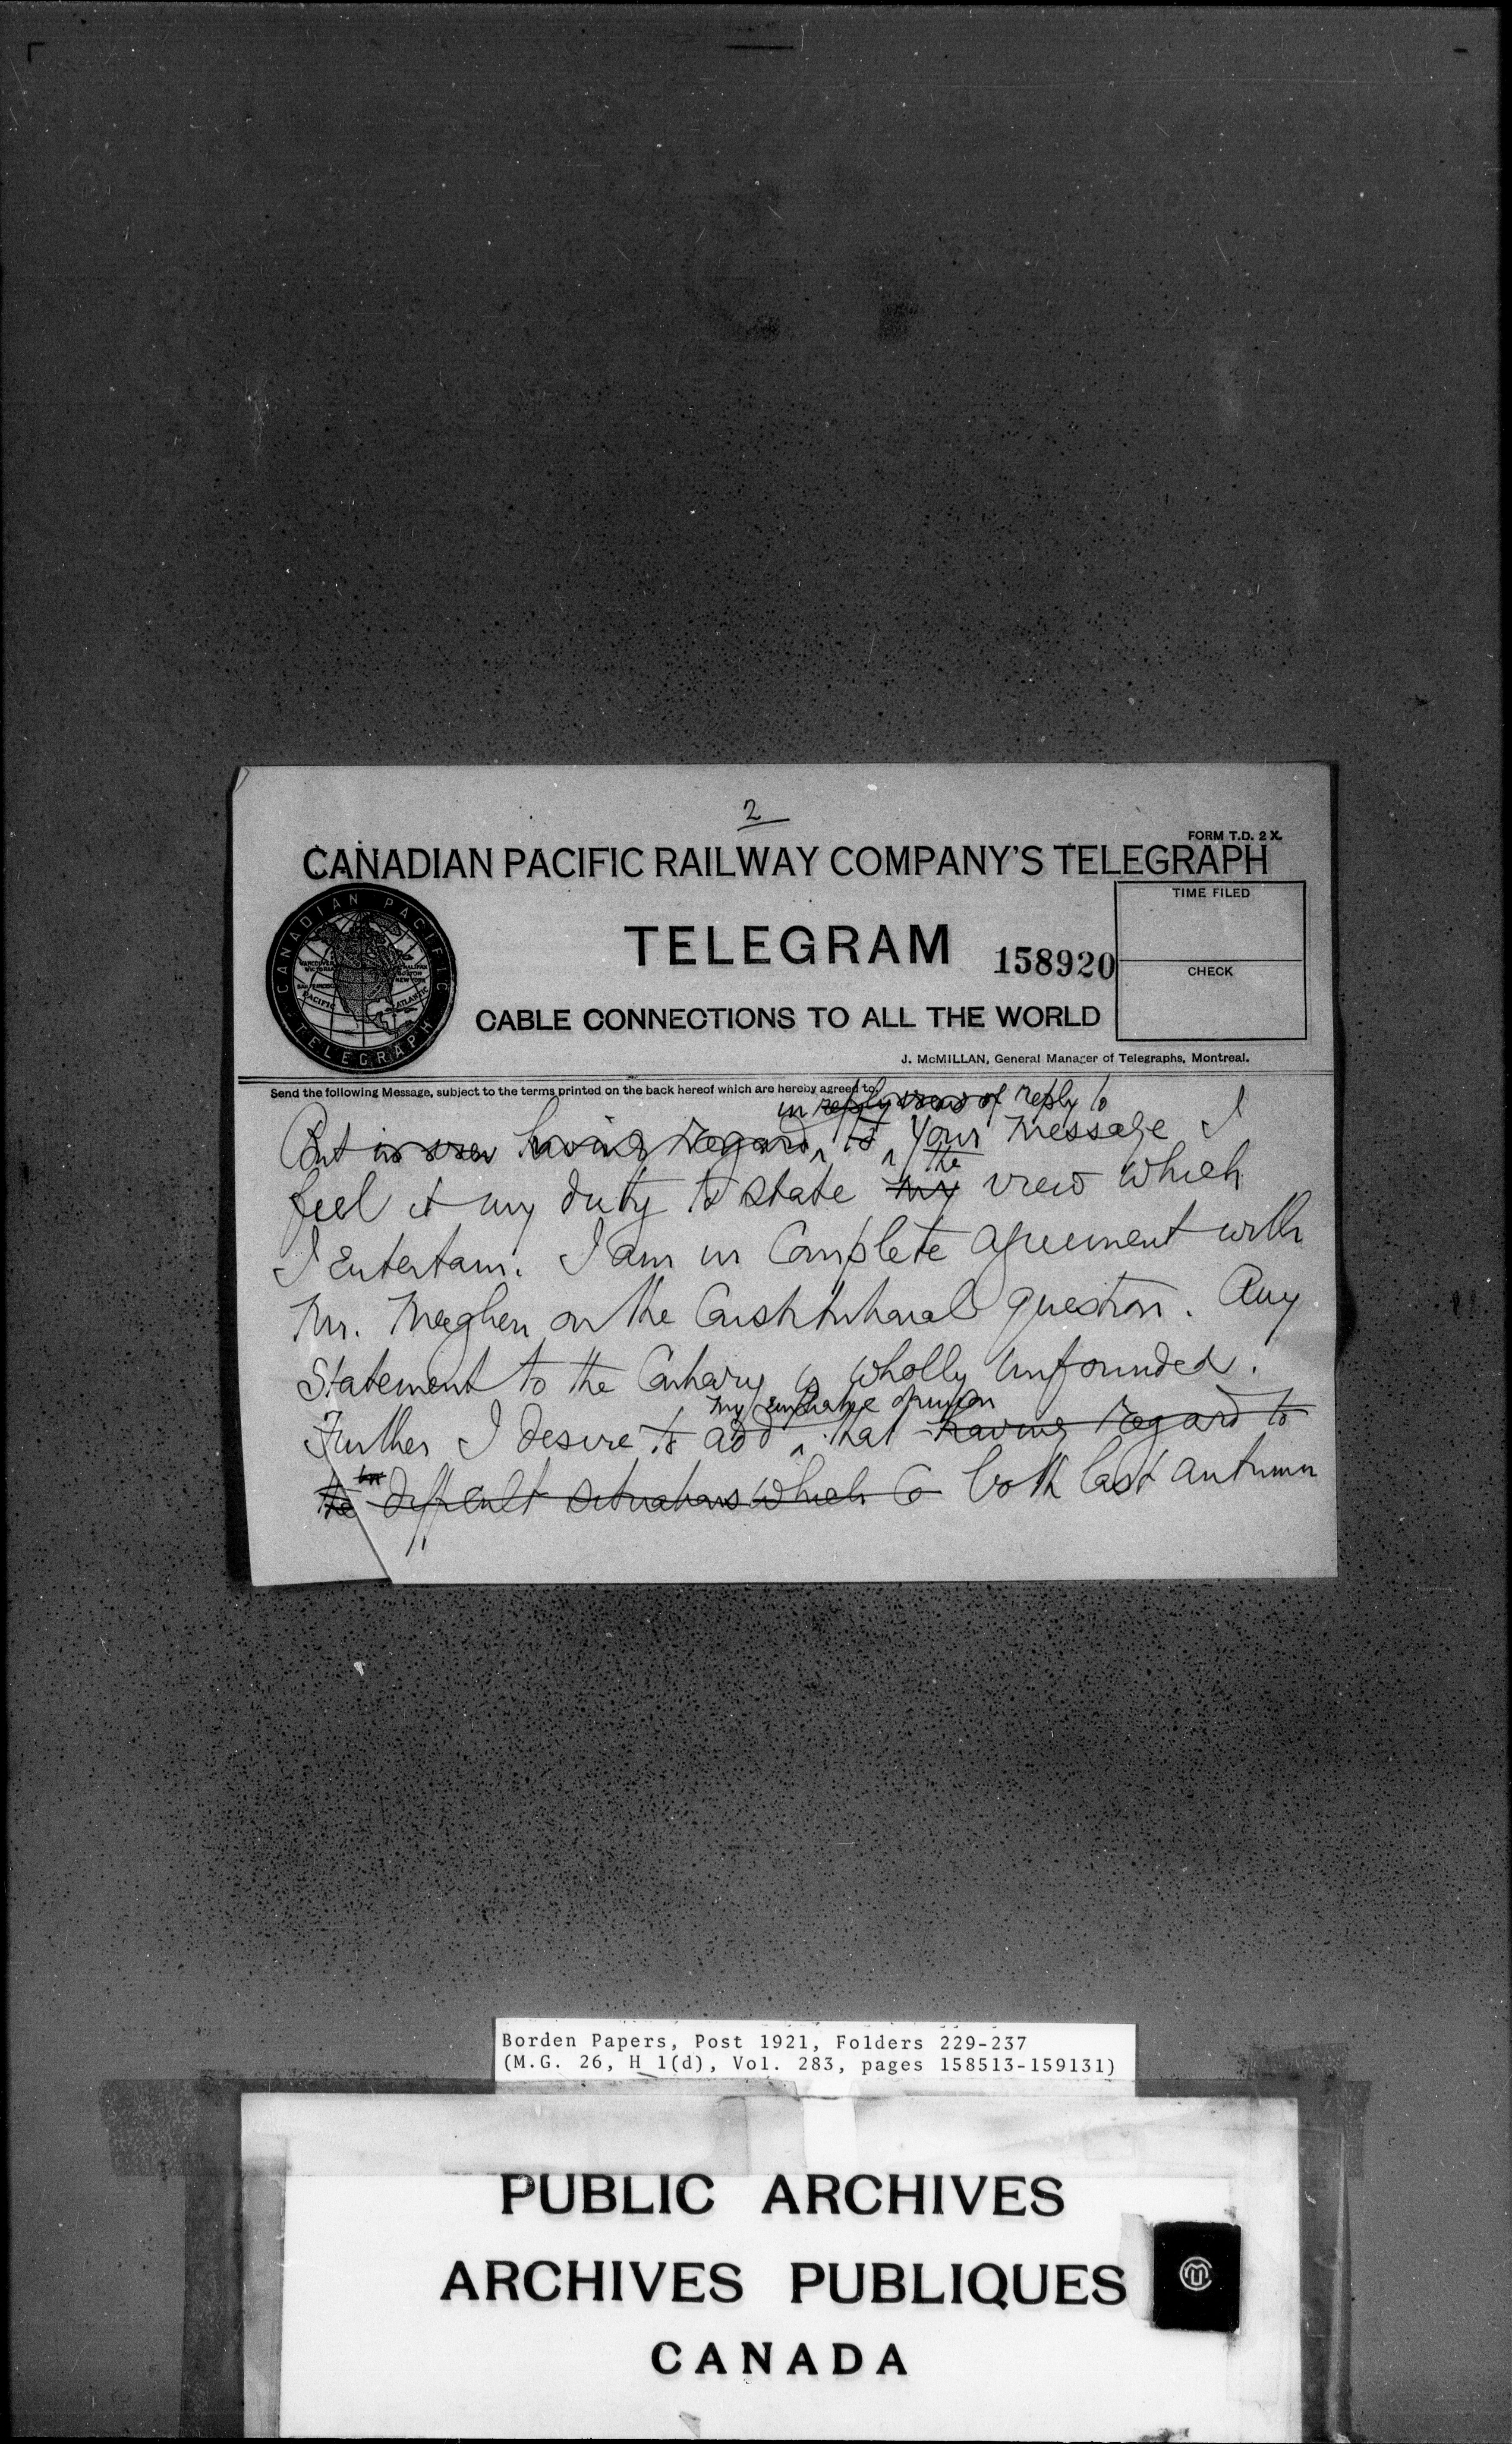 2
FORM T.D. 2 X.
CANADIAN PACIFIC RAILWAY COMPANY'S TELEGRAPH
CANADIAN PACIFIC
TELEGRAPH
VANCOUVER
VICTORIA
HALIFAX
BOSTON
NEW YORK
PACIFIC
ATLANTIC
TIME FILED
TELEGRAM
158920
CHECK
CABLE CONNECTIONS TO ALL THE WORLD
J. McMILLAN, General Manager of Telegraphs, Montreal.
Send the following Message, subject to the terms printed on the back hereof which are hereby agreed to.
in reply view of reply to
But in view having regard to your message I
the
feel it my duty to state my view which
I entertain. I am in complete agreement with
Mr. Meighen on the Constitutional question. Any
statement to the contrary is wholly unfounded.
my emphatic opinion
Further I desire to add that having regard to
the difficult situations which both last autumn
Borden Papers, Post 1921, Folders 229-237
(M.G. 26, H 1(d), Vol. 283, pages 158513-159131)
PUBLIC ARCHIVES
ARCHIVES PUBLIQUES
CANADA